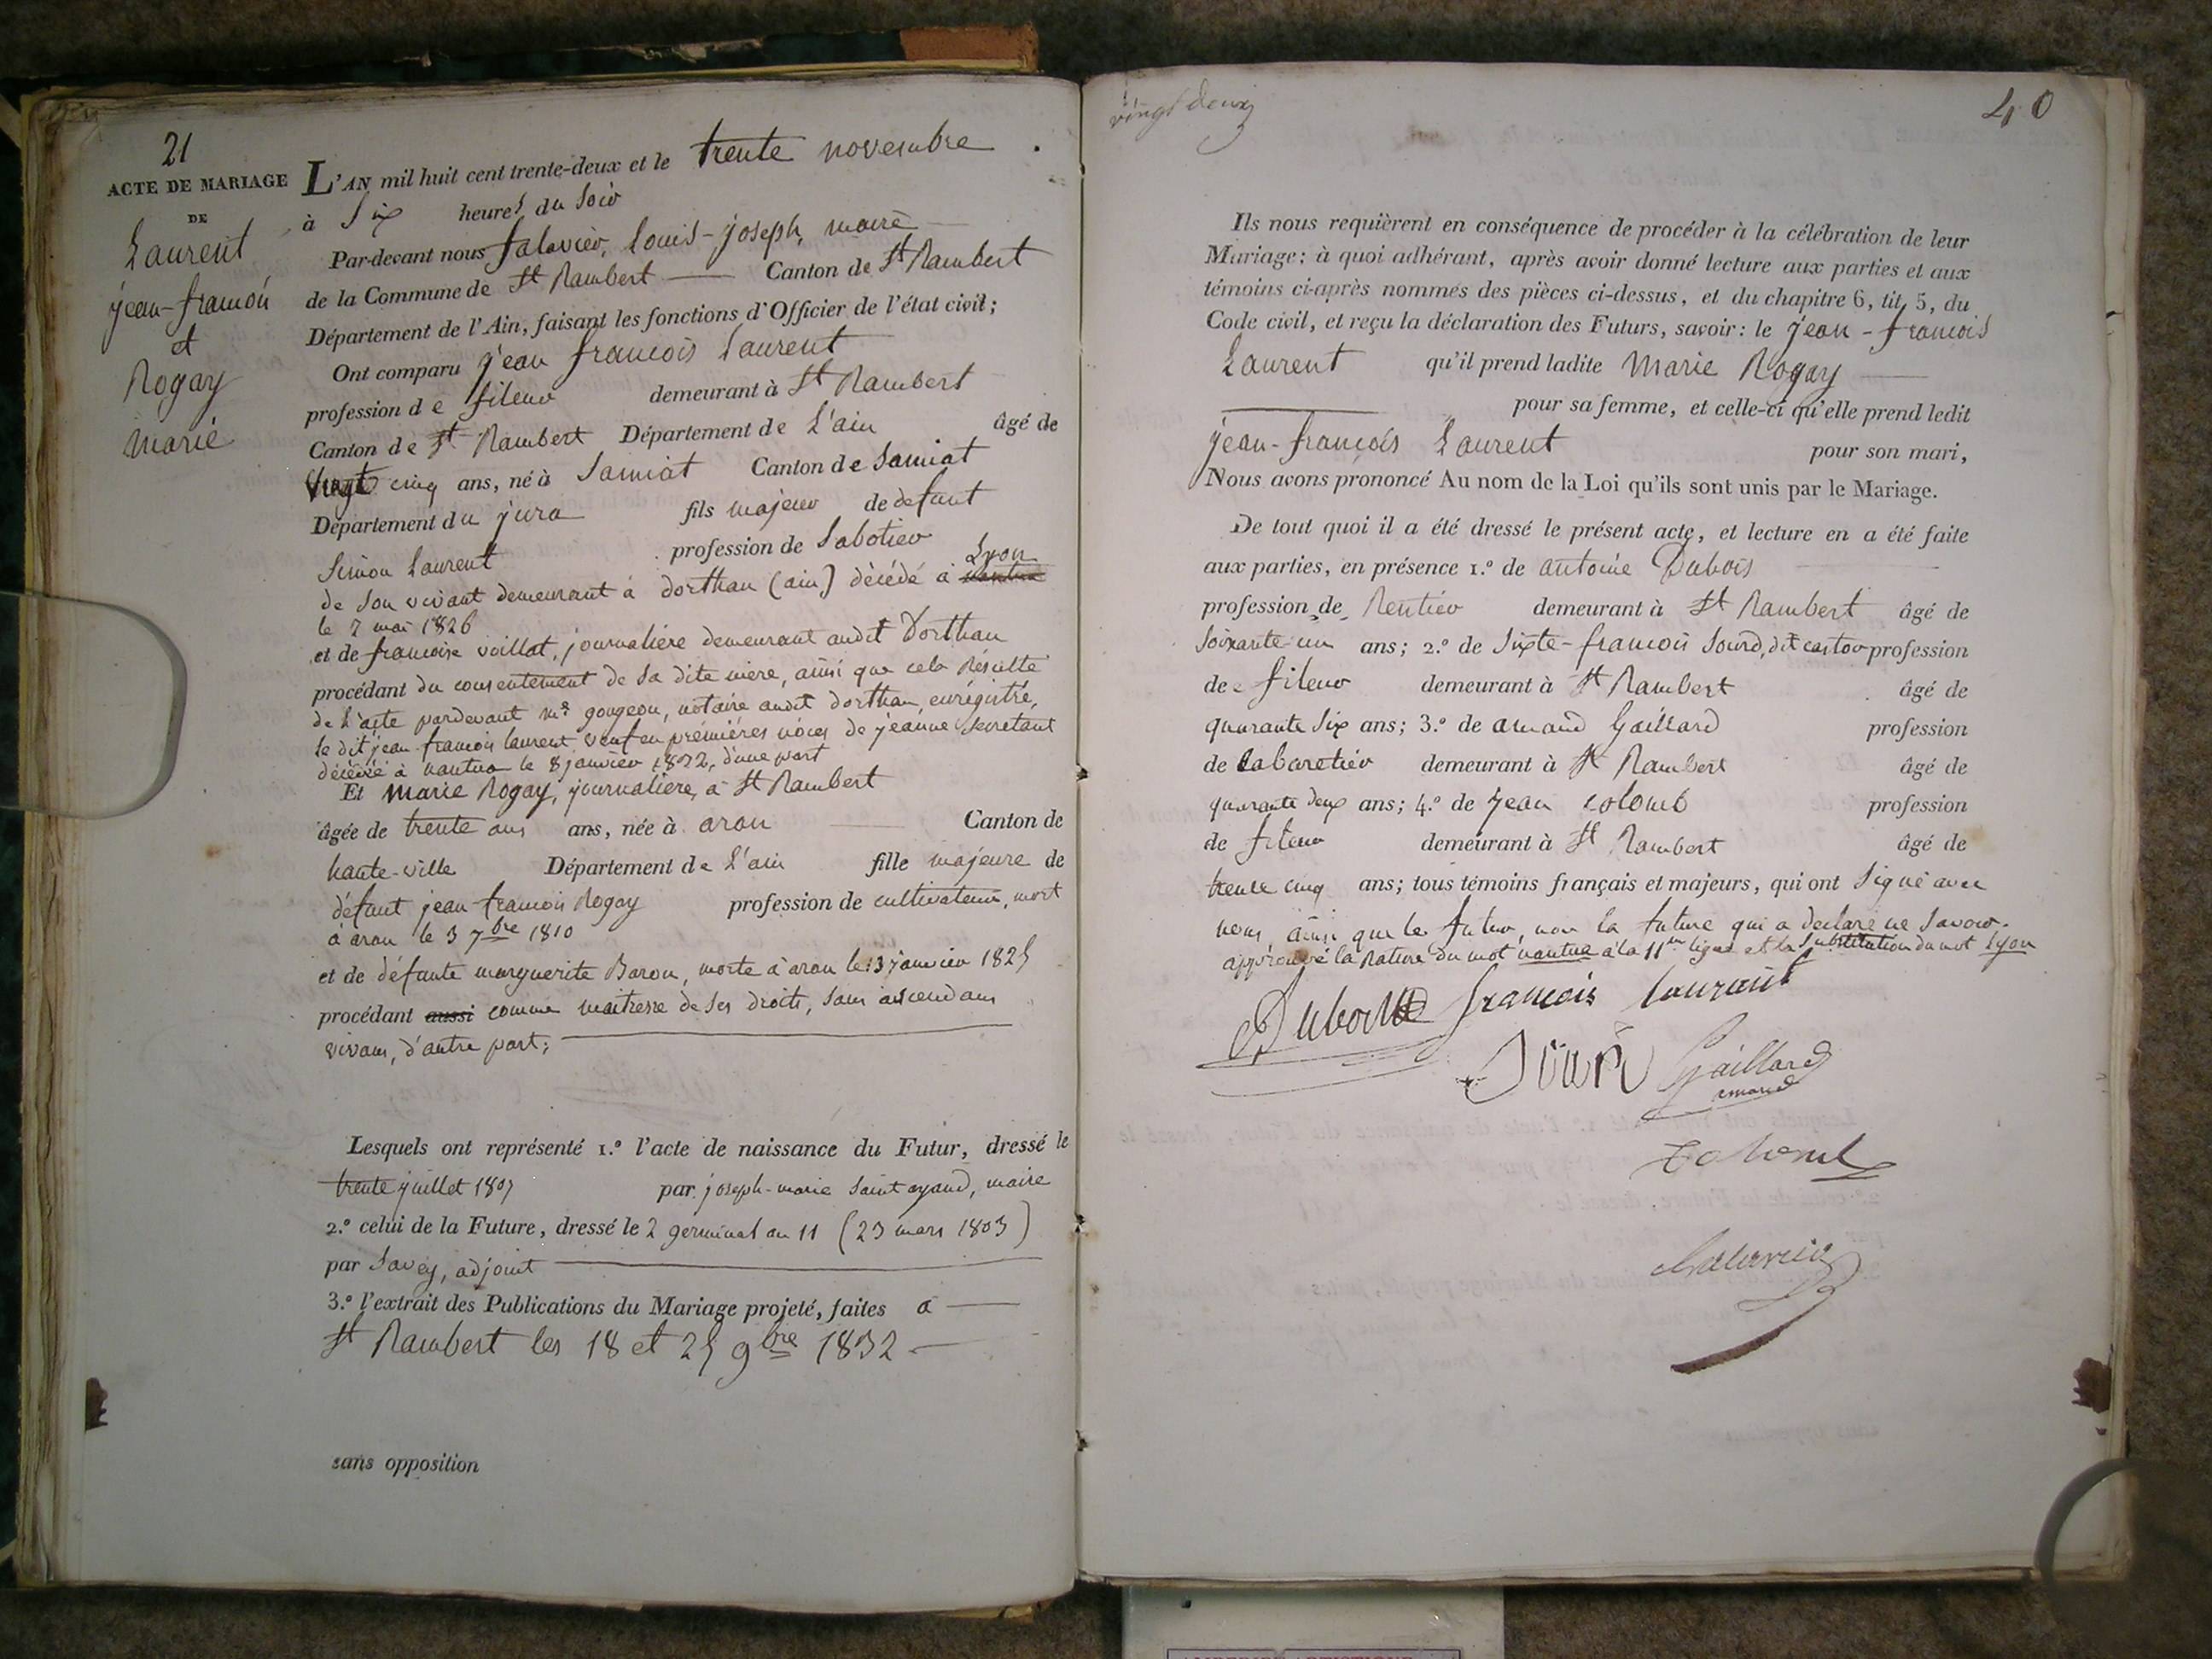 21
ACTE DE MARIAGE
DE
Laurent
jean-francois
et
Rogay
marie
L'AN mil huit cent trente-deux et le trente novembre
à Six heures du Soir
Par-devant nous Salavier, Louis-joseph, maire
de la Commune de St Rambert Canton de St Rambert
Département de l'Ain, faisant les fonctions d'Officier de l'état civil;
Ont comparu jean francois Laurent
profession de fileur demeurant à St Rambert
Canton de St Rambert Département de L'ain âgé de
vingt cinq ans, né à Samiat Canton de Samiat
Département du jura fils majeur de defunt
Simon Laurent profession de Sabotier
de Son vivant demeurant à dorthan (ain) décédé à nantua Lyon
le 7 mai 1826
et de francoise voillat, journalière demeurant audit Dorthan
procédant du consentement de Sa dite mere, ainsi que cela Résulte
de L'acte pardevant me gougeon, notaire audit dorthan, enrégistré,
le dit jean-francois laurent veuf en prémières nôces de jeanne Secretant
décédée à nantua le 8 janvier 1832, d'une part
Et Marie Rogay, journalière, à St Rambert
âgée de trente ans ans, née à aran Canton de
haute-ville Département de L'ain fille majeure de
défunt jean-francois Rogay profession de cultivateur, mort
à aran le 3 7bre 1810
et de défunte marguerite Baron, morte à aran le 13 janvier 1825
procédant aussi comme maitresse de Ses droits, Sans ascendans
vivans, d'autre part;
Lesquels ont représenté 1.º l'acte de naissance du Futur, dressé le
trente juillet 1807 par joseph-marie Saint oyand, maire
2.º celui de la Future, dressé le 2 germinal an 11 (23 mars 1803)
par Savey, adjoint
3.º l'extrait des Publications du Mariage projeté, faites à
St Rambert les 18 et 25 9bre 1832
sans opposition
vingt deux
40
Ils nous requièrent en conséquence de procéder à la célébration de leur
Mariage; à quoi adhérant, après avoir donné lecture aux parties et aux
témoins ci-après nommés des pièces ci-dessus, et du chapitre 6, tit, 5, du
Code civil, et reçu la déclaration des Futurs, savoir: le jean-francois
Laurent qu'il prend ladite Marie Rogay
pour sa femme, et celle-ci qu'elle prend ledit
jean-francois Laurent pour son mari,
Nous avons prononcé Au nom de la Loi qu'ils sont unis par le Mariage.
De tout quoi il a été dressé le présent acte, et lecture en a été faite
aux parties, en présence 1.º de antoine Dubois
profession de Rentier demeurant à St Rambert âgé de
Soixante-un ans; 2.º de Sixte-francois Sourd, dit castor profession
de fileur demeurant à St Rambert âgé de
quarante Six ans; 3.º de amand Gaillard profession
de Cabaretier demeurant à St Rambert âgé de
quarante deux ans; 4.º de jean colomb profession
de fileur demeurant à St Rambert âgé de
trente cinq ans; tous témoins français et majeurs, qui ont Signé avec
nous ainsi que le futur, non la future qui a déclaré ne Savoir.
approuvé la Rature du mot nantua à la 11me ligne et la Substitution du mot Lyon
francois laurent
Gaillard
amand